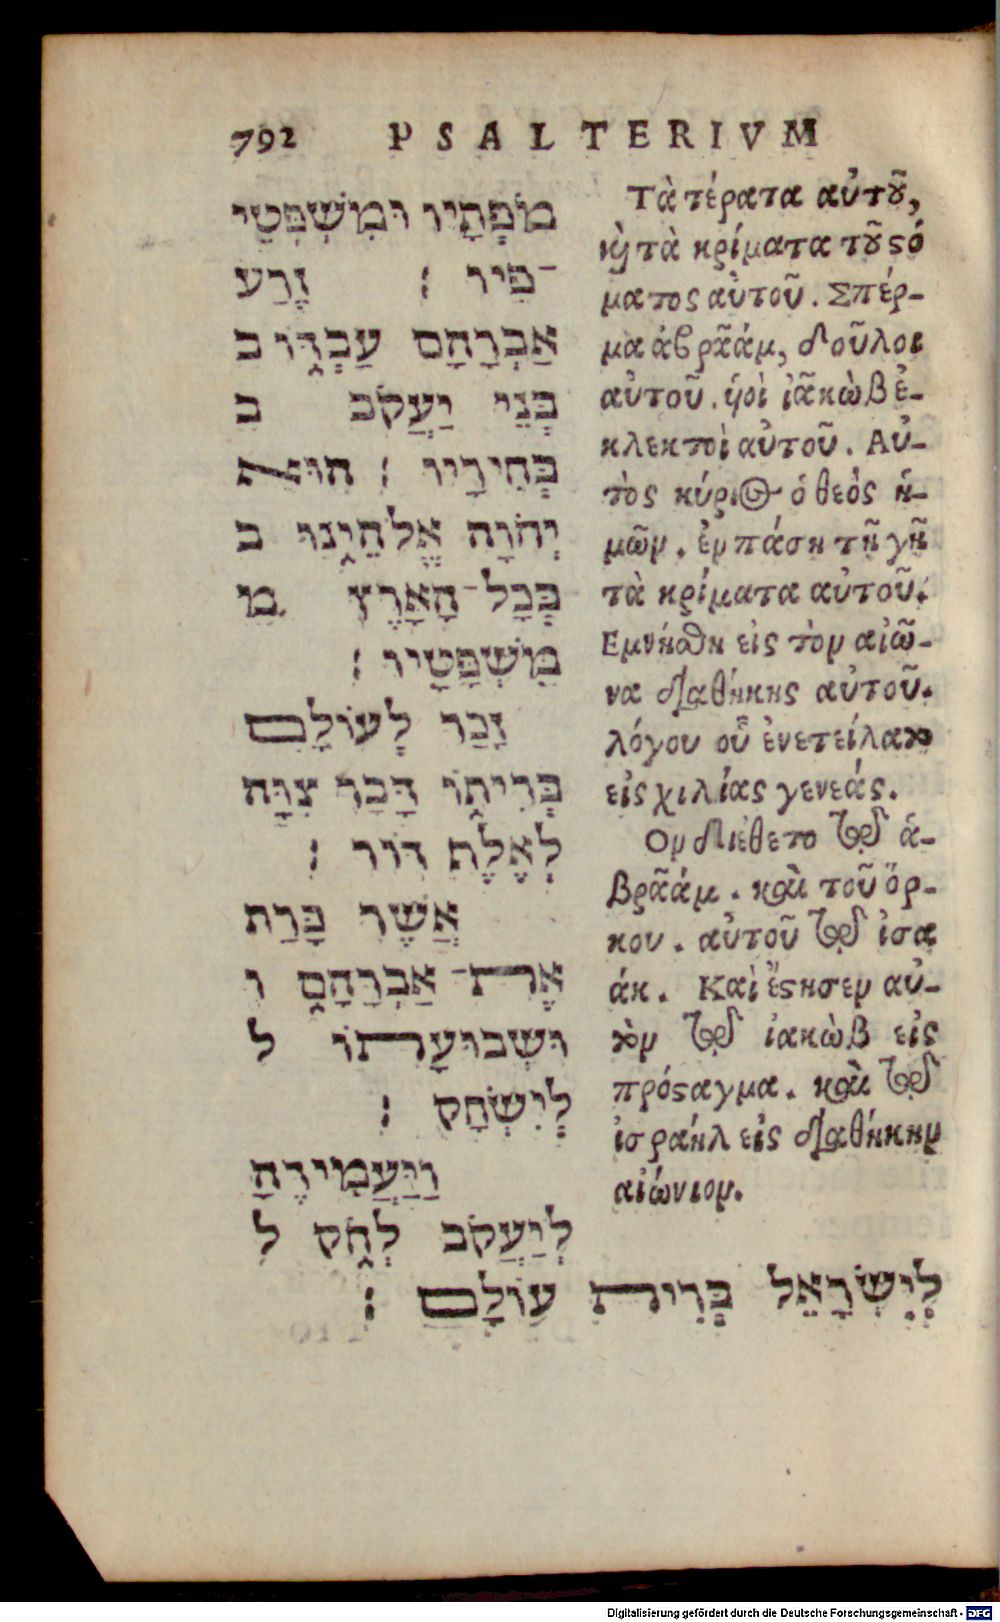 792 PSALTERIVM
מֹפְתָיו וּמִשְׁפְּטֵי
־פִיו ׃ זֶרַע
אַבְרָהָם עַבְדּ֑וֹ ב
בְּנֵי יַעֲקֹב ב
בְּחִירָיו ׃ הוּא
יְהֹוָה אֱלֹהֵ֑ינוּ ב
בְּכָל־הָאָרֶץ מ
מִשְׁפָּטָיו ׃
זָכַר לְעוֹלָם
בְּרִית֑וֹ דָּבָר צִוָּה
לְאֶלֶף דּוֹר ׃
אֲשֶׁר כָּרַת
אֶת־אַבְרָהָ֑ם ו
וּשְׁבוּעָתוֹ ל
לְיִשְׂחָק ׃
וַיַּעֲמִידֶהָ
לְיַעֲקֹב לְחֹ֑ק ל
לְיִשְׂרָאֵל בְּרִית עוֹלָם ׃
Τὰ τέρατα αὐτοῦ,
καὶ τὰ κρίματα τοῦ στό
ματος αὐτοῦ. Σπέρ-
μα ἀβρᾶάμ, δοῦλοι
αὐτοῦ. ἡοὶ ἰᾶκὼβ ἐ-
κλεκτοὶ αὐτοῦ. Αὐ-
τὸς κύριος ὁ θεὸς ἡ-
μῶν. ἐν πάσῃ τῇ γῇ
τὰ κρίματα αὐτοῦ.
Εμνήσθη εἰς τὸν αἰῶ-
να διαθήκης αὐτοῦ.
λόγου οὗ ἐνετείλατο
εἰς χιλίας γενεάς.
Ον διέθετο τῷ ἁ-
βρᾶάμ. καὶ τοῦ ὅρ-
κου. αὐτοῦ τῷ ἰσα
άκ. Καὶ ἔστησεν αὐ-
τὸν τῷ ἰακὼβ εἰς
πρόσταγμα. καὶ τῷ
ἰσραήλ εἰς διαθήκην
αἰώνιον.
Digitalisierung gefördert durch die Deutsche Forschungsgemeinschaft - DFG